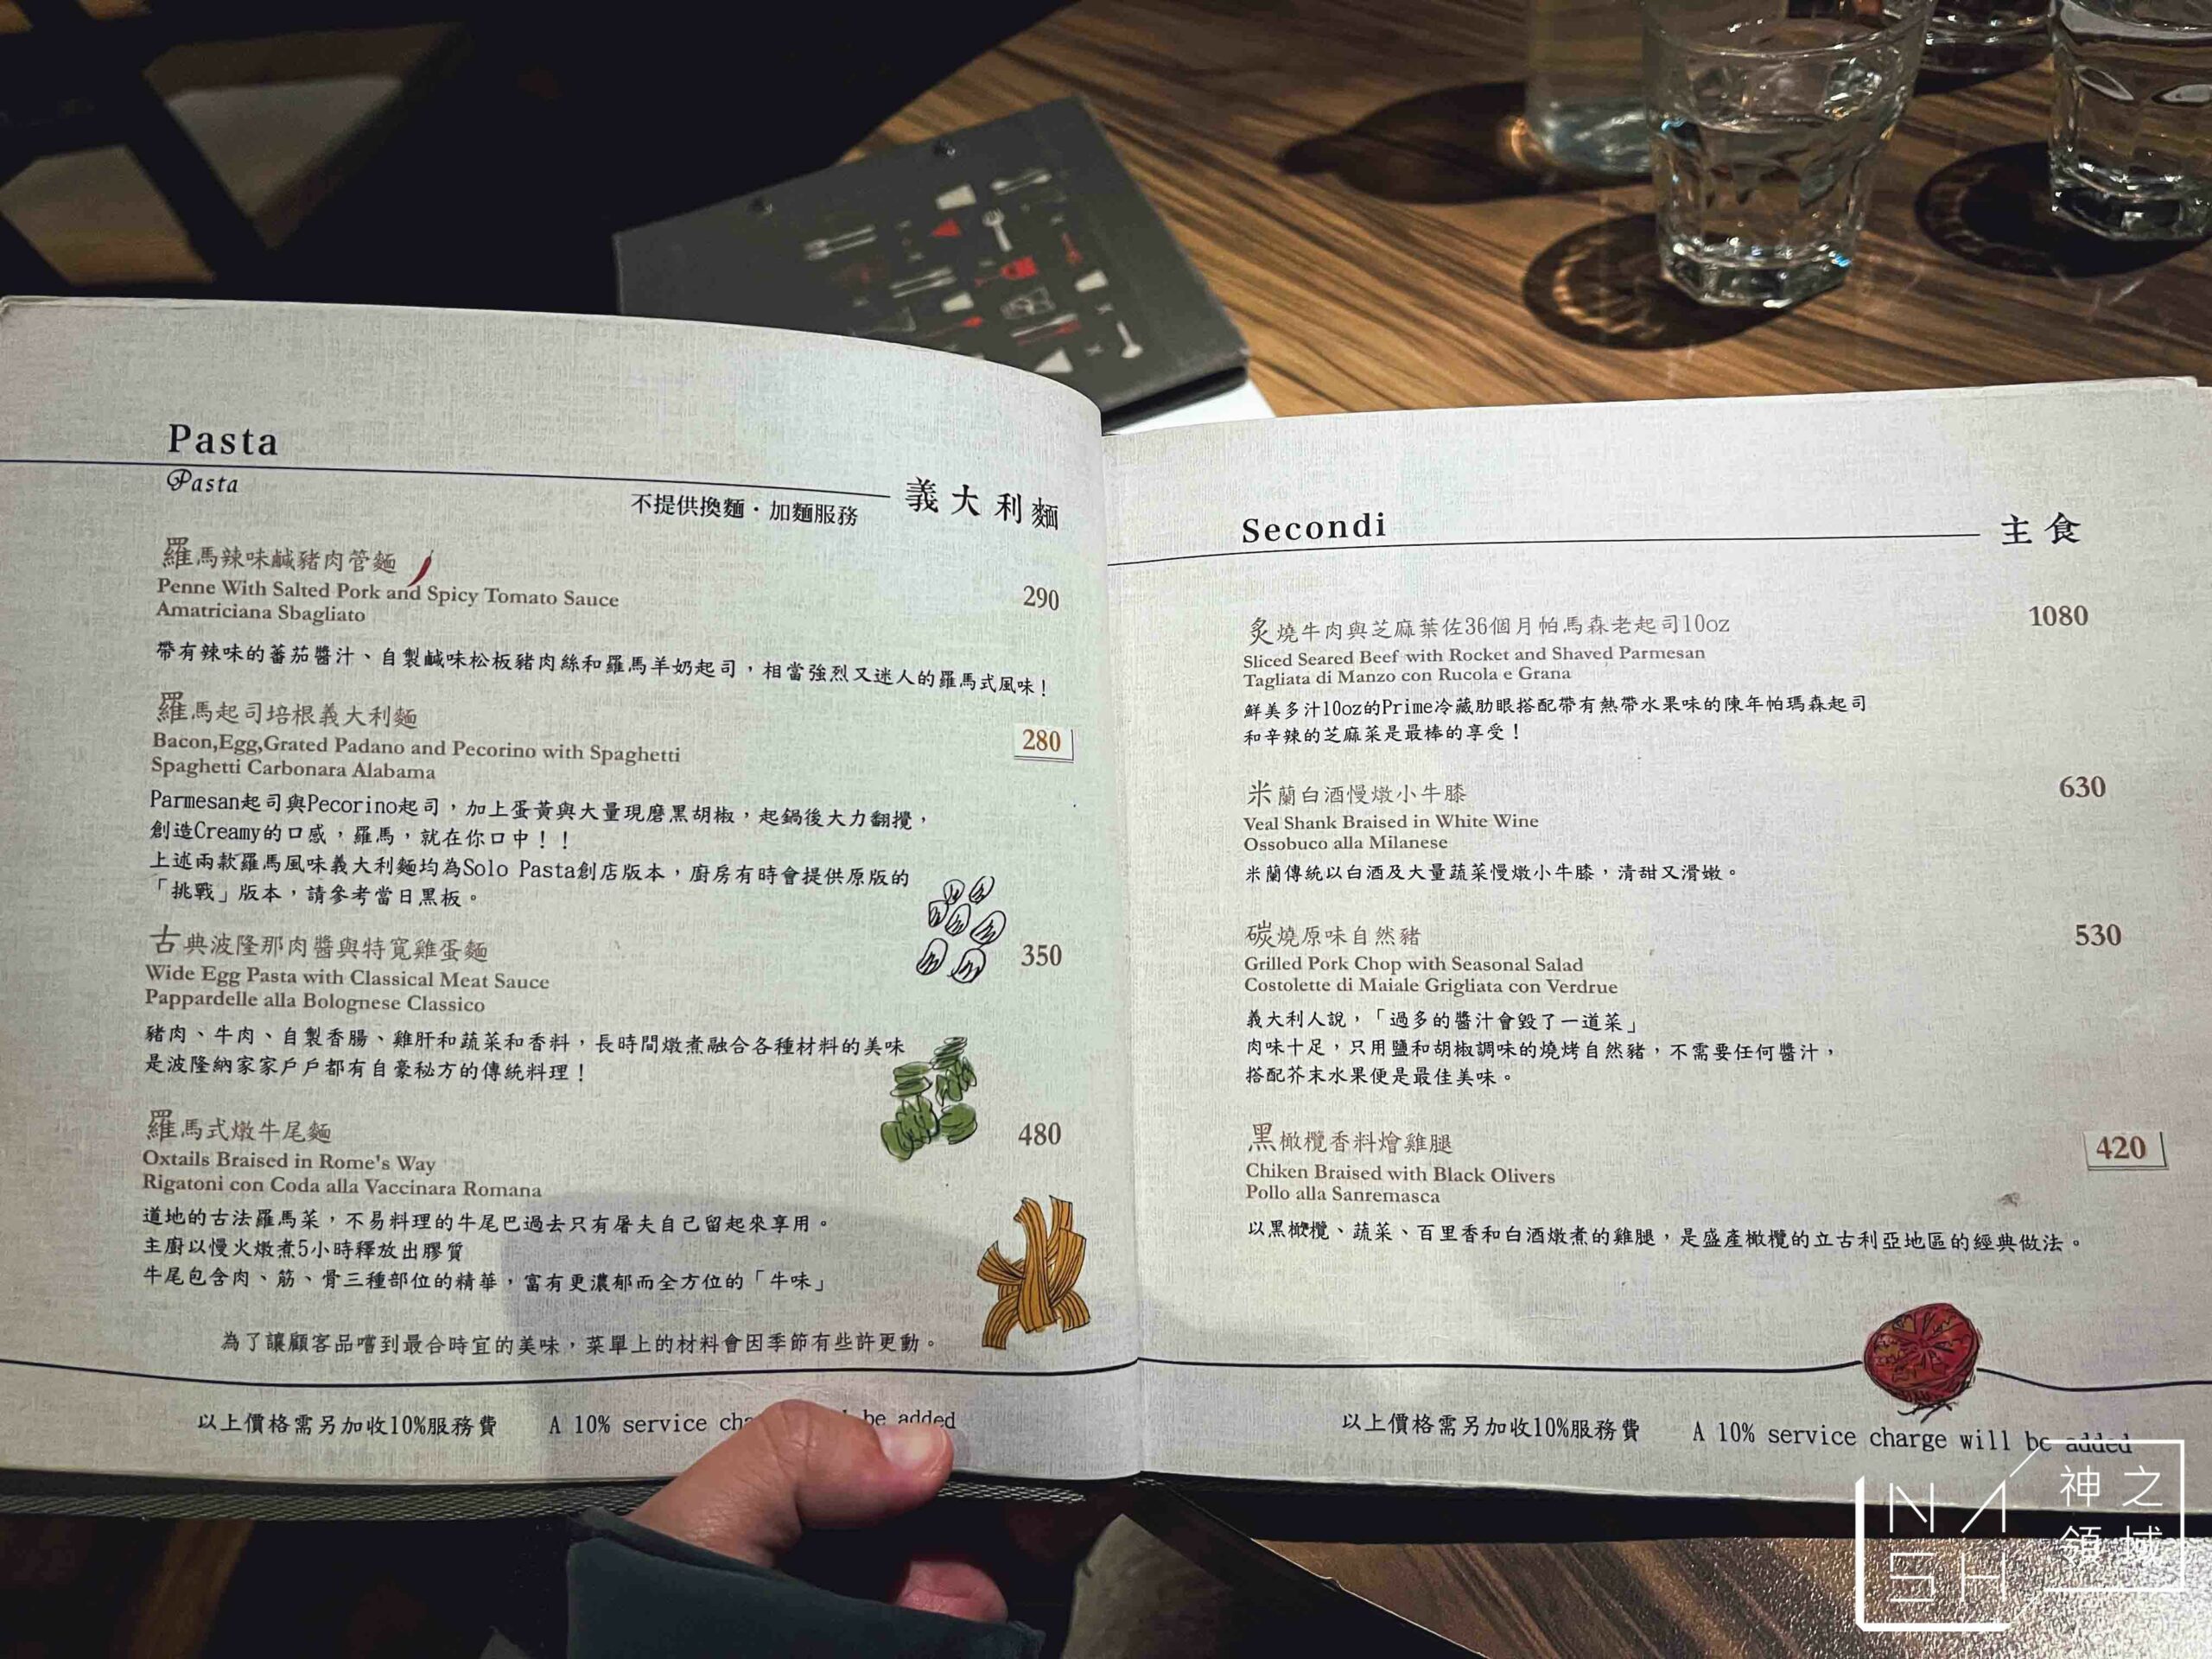 Pasta
Pasta
不提供換麵・加麵服務
義大利麵
羅馬辣味鹹豬肉管麵
Penne With Salted Pork and Spicy Tomato Sauce
290
Amatriciana Sbagliato
帶有辣味的蕃茄醬汁、自製鹹味松板豬肉絲和羅馬羊奶起司，相當強烈又迷人的羅馬式風味！
羅馬起司培根義大利麵
Bacon,Egg,Grated Padano and Pecorino with Spaghetti
280
Spaghetti Carbonara Alabama
Parmesan起司與Pecorino起司，加上蛋黃與大量現磨黑胡椒，起鍋後大力翻攪，
創造Creamy的口感，羅馬，就在你口中！！
上述兩款羅馬風味義大利麵均為Solo Pasta創店版本，廚房有時會提供原版的
「挑戰」版本，請參考當日黑板。
古典波隆那肉醬與特寬雞蛋麵
350
Wide Egg Pasta with Classical Meat Sauce
Pappardelle alla Bolognese Classico
豬肉、牛肉、自製香腸、雞肝和蔬菜和香料，長時間燉煮融合各種材料的美味
是波隆納家家戶戶都有自豪秘方的傳統料理！
羅馬式燉牛尾麵
480
Oxtails Braised in Rome's Way
Rigatoni con Coda alla Vaccinara Romana
道地的古法羅馬菜，不易料理的牛尾巴過去只有屠夫自己留起來享用。
主廚以慢火燉煮5小時釋放出膠質
牛尾包含肉、筋、骨三種部位的精華，富有更濃郁而全方位的「牛味」
為了讓顧客品嚐到最合時宜的美味，菜單上的材料會因季節有些許更動。
以上價格需另加收10%服務費 A 10% service be added
Secondi
主食
炙燒牛肉與芝麻葉佐36個月帕馬森老起司10oz
1080
Sliced Seared Beef with Rocket and Shaved Parmesan
Tagliata di Manzo con Rucola e Grana
鮮美多汁10oz的Prime冷藏肋眼搭配帶有熱帶水果味的陳年帕瑪森起司
和辛辣的芝麻菜是最棒的享受！
米蘭白酒慢燉小牛膝
630
Veal Shank Braised in White Wine
Ossobuco alla Milanese
米蘭傳統以白酒及大量蔬菜慢燉小牛膝，清甜又滑嫩。
碳燒原味自然豬
530
Grilled Pork Chop with Seasonal Salad
Costolette di Maiale Grigliata con Verdrue
義大利人說，「過多的醬汁會毀了一道菜」
肉味十足，只用鹽和胡椒調味的燒烤自然豬，不需要任何醬汁，
搭配芥末水果便是最佳美味。
黑橄欖香料燴雞腿
420
Chiken Braised with Black Olivers
Pollo alla Sanremasca
以黑橄欖、蔬菜、百里香和白酒燉煮的雞腿，是盛產橄欖的立古利亞地區的經典做法。
以上價格需另加收10%服務費 A 10% service charge will be added
NASH
神之領域